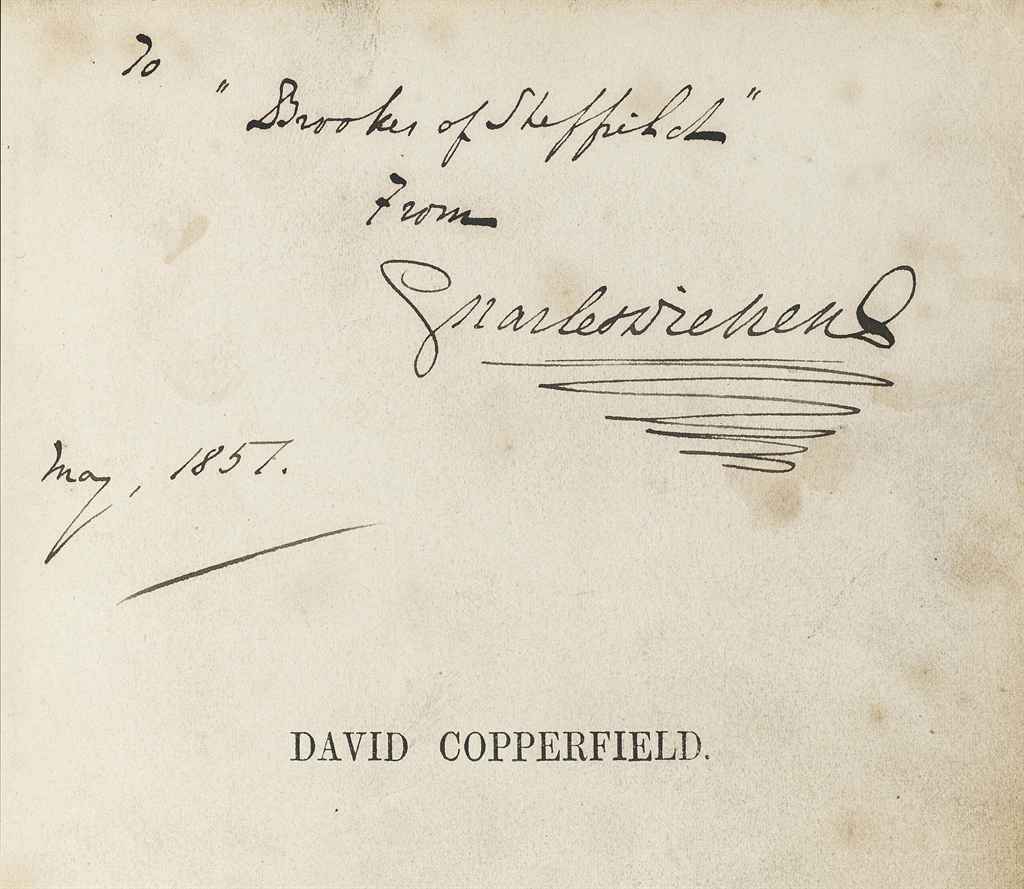 To
"Brookes of Sheffield"
From
Charles Dickens
May, 1851.
DAVID COPPERFIELD.